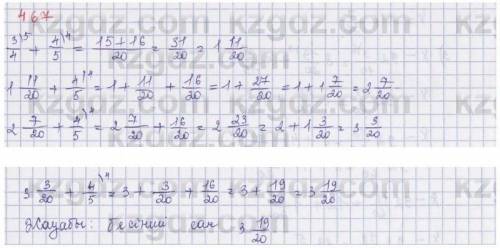 467
3/4 \5 + 4/5 \4 = 15+16/20 = 31/20 = 1 11/20
1 11/20 + 4/5 \4 = 1 + 11/20 + 16/20 = 1 + 27/20 = 1 + 1 7/20 = 2 7/20
2 7/20 + 4/5 \4 = 2 7/20 + 16/20 = 2 23/20 = 2 + 1 3/20 = 3 3/20
3 3/20 + 4/5 \4 = 3 + 3/20 + 16/20 = 3 + 19/20 = 3 19/20
Жауабы: бесінші сан 3 19/20